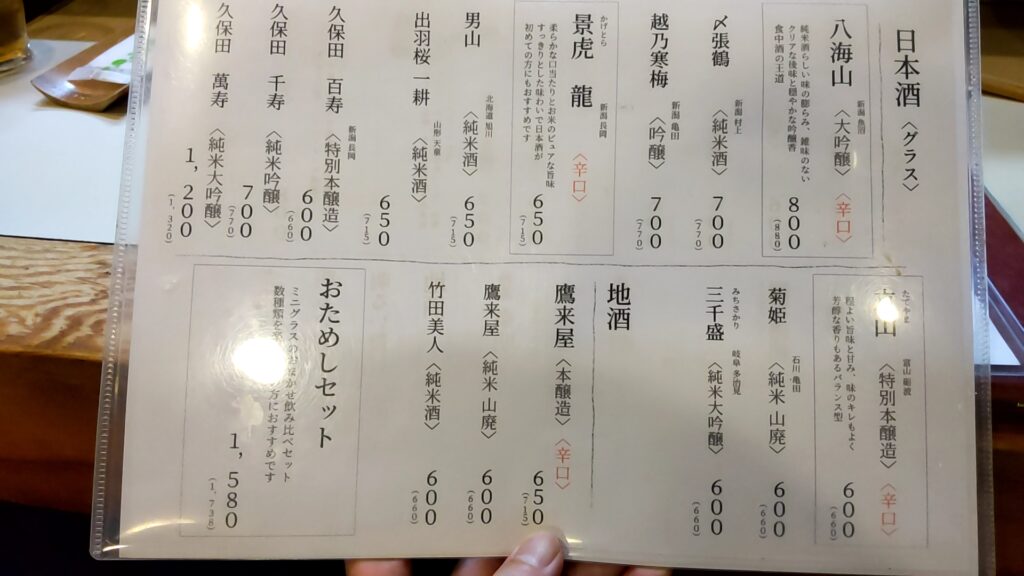 日本酒〈グラス〉
新潟 魚沼
八海山〈大吟醸〉〈辛口〉 800
(880)
純米酒らしい味の膨らみ、雑味のない
クリアな後味と穏やかな吟醸香
食中酒の王道
新潟 村上
〆張鶴〈純米酒〉 700
(770)
新潟 亀田
越乃寒梅〈吟醸〉 700
(770)
かげとら
新潟 長岡
景虎 龍〈辛口〉 650
(715)
柔らかな口当たりとお米のピュアな旨味
すっきりとした味わいで日本酒が
初めての方にもおすすめです
北海道 旭川
男山〈純米酒〉 650
(715)
山形 天童
出羽桜 一耕〈純米酒〉 650
(715)
新潟 長岡
久保田 百寿〈特別本醸造〉 600
(660)
久保田 千寿〈純米吟醸〉 700
(770)
久保田 萬寿〈純米大吟醸〉 1,200
(1,320)
たてやま
富山 砺波
山〈特別本醸造〉〈辛口〉 600
(660)
程よい旨味と甘み、味のキレもよく
芳醇な香りもあるバランス型
石川 亀田
菊姫〈純米 山廃〉 600
(660)
みちさかり
岐阜 多治見
三千盛〈純米大吟醸〉 600
(660)
地酒
鷹来屋〈本醸造〉〈辛口〉 650
(715)
鷹来屋〈純米 山廃〉 600
(660)
竹田美人〈純米酒〉 600
(660)
おためしセット
ミニグラスの かせ飲み比べセット
数種類を 方におすすめです
1,580
(1,738)